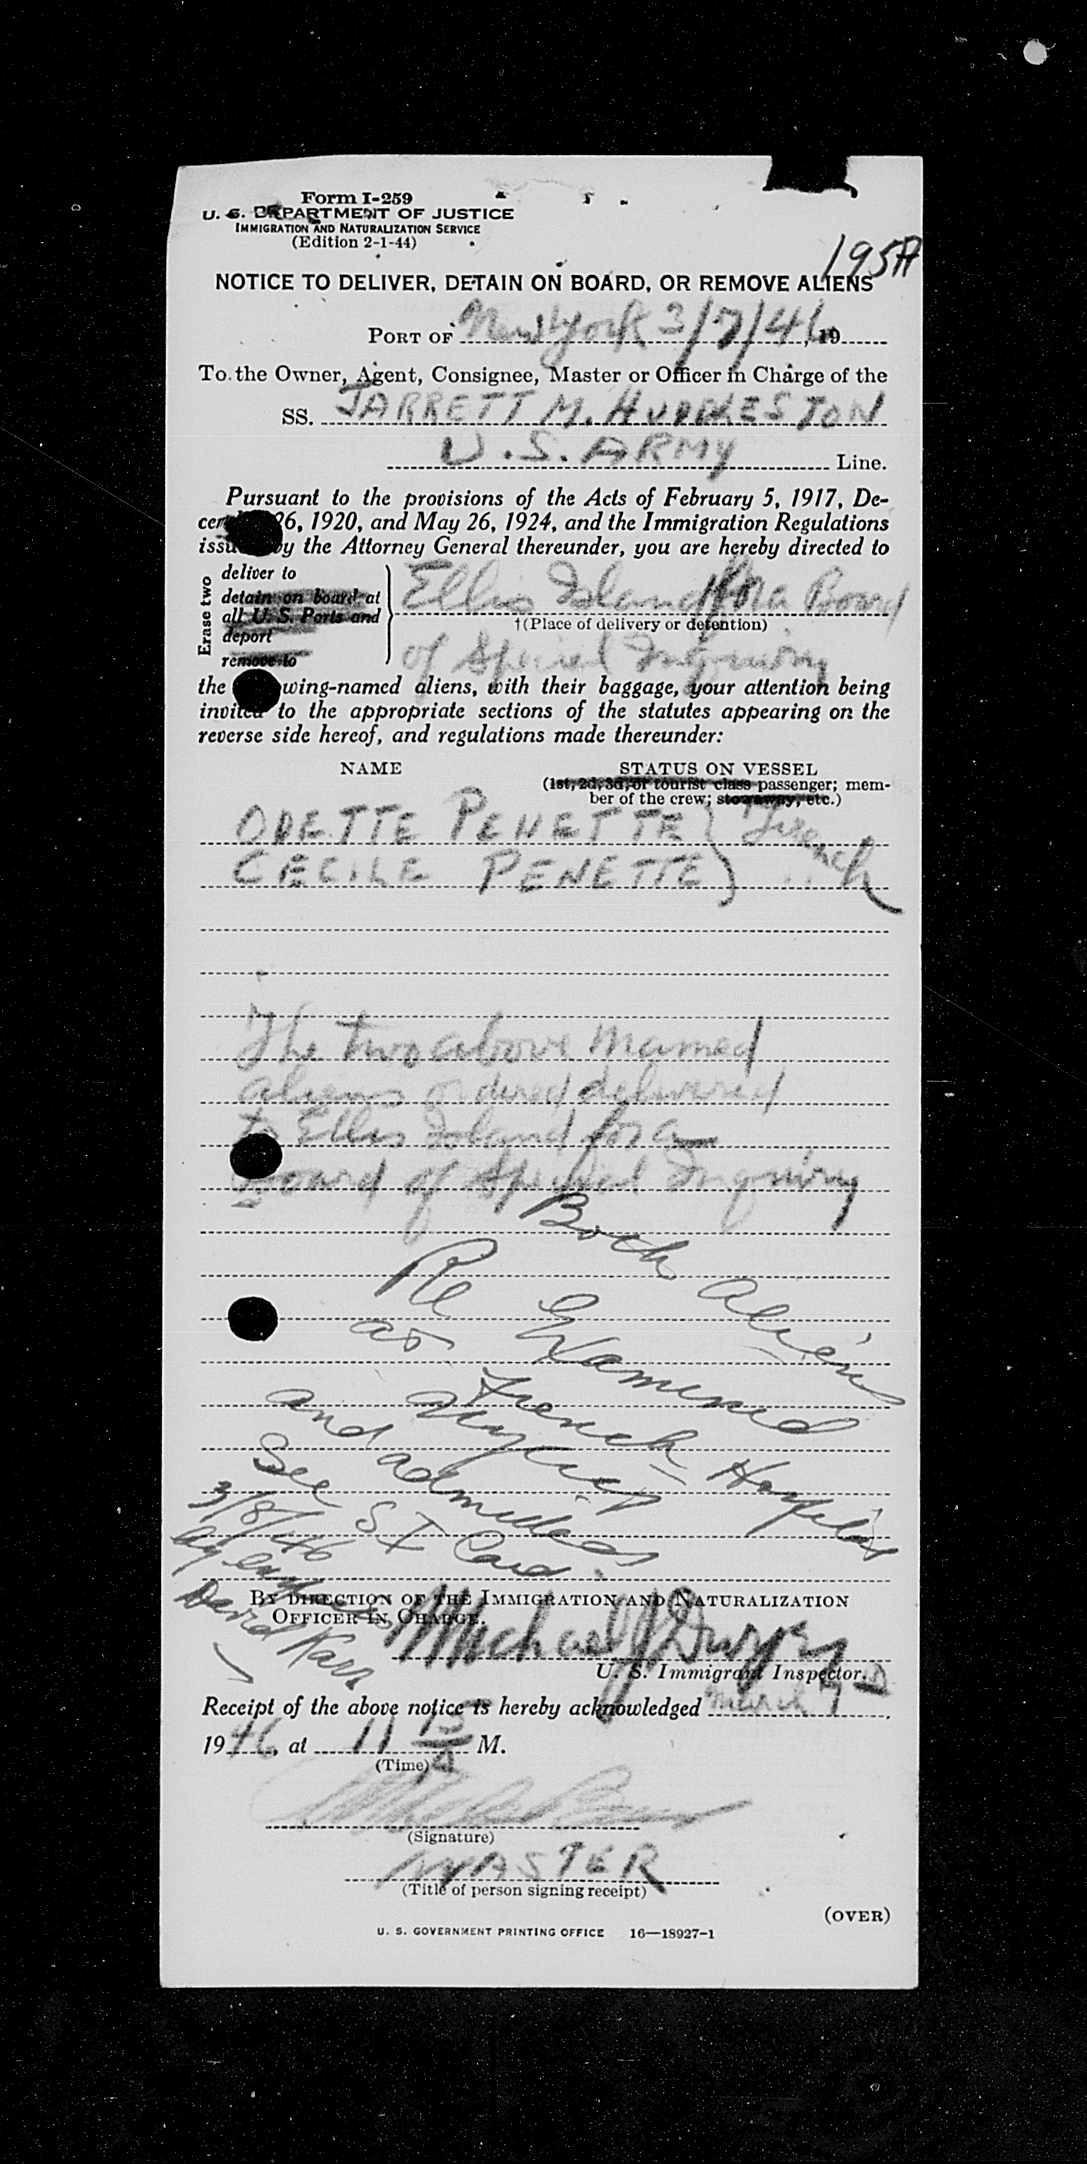 Form I-259
U. S. DEPARTMENT OF JUSTICE
IMMIGRATION AND NATURALIZATION SERVICE
(Edition 2-1-44)
195A
NOTICE TO DELIVER, DETAIN ON BOARD, OR REMOVE ALIENS
PORT OF New York 3/7/46, 19
To the Owner, Agent, Consignee, Master or Officer in Charge of the
SS. JARRETT M. HUDDLESTON
U.S. ARMY Line.
Pursuant to the provisions of the Acts of February 5, 1917, De-
cember 26, 1920, and May 26, 1924, and the Immigration Regulations
issued by the Attorney General thereunder, you are hereby directed to
Erase two
deliver to
detain on board at
all U. S. Ports and
deport
remove to
Ellis Island for a Board
†(Place of delivery or detention)
of Special Inquiry
the following-named aliens, with their baggage, your attention being
invited to the appropriate sections of the statutes appearing on the
reverse side hereof, and regulations made thereunder:
NAME STATUS ON VESSEL
(1st, 2d, 3d, or tourist class passenger; mem-
ber of the crew; stowaway, etc.)
ODETTE PENETTE } French
CECILE PENETTE
The two above named
aliens ordered delivered
to Ellis Island for a
Board of Special Inquiry
Both aliens
Re Examined
at French Hospital
and admitted
See S I Card.
3/8/46
David Kass
BY DIRECTION OF THE IMMIGRATION AND NATURALIZATION
OFFICER IN CHARGE.
Michael J Dwyer
U. S. Immigrant Inspector.
Receipt of the above notice is hereby acknowledged March 7,
1946, at 11 15 A M.
(Time)
(Signature)
MASTER
(Title of person signing receipt)
(OVER)
U. S. GOVERNMENT PRINTING OFFICE 16—18927-1